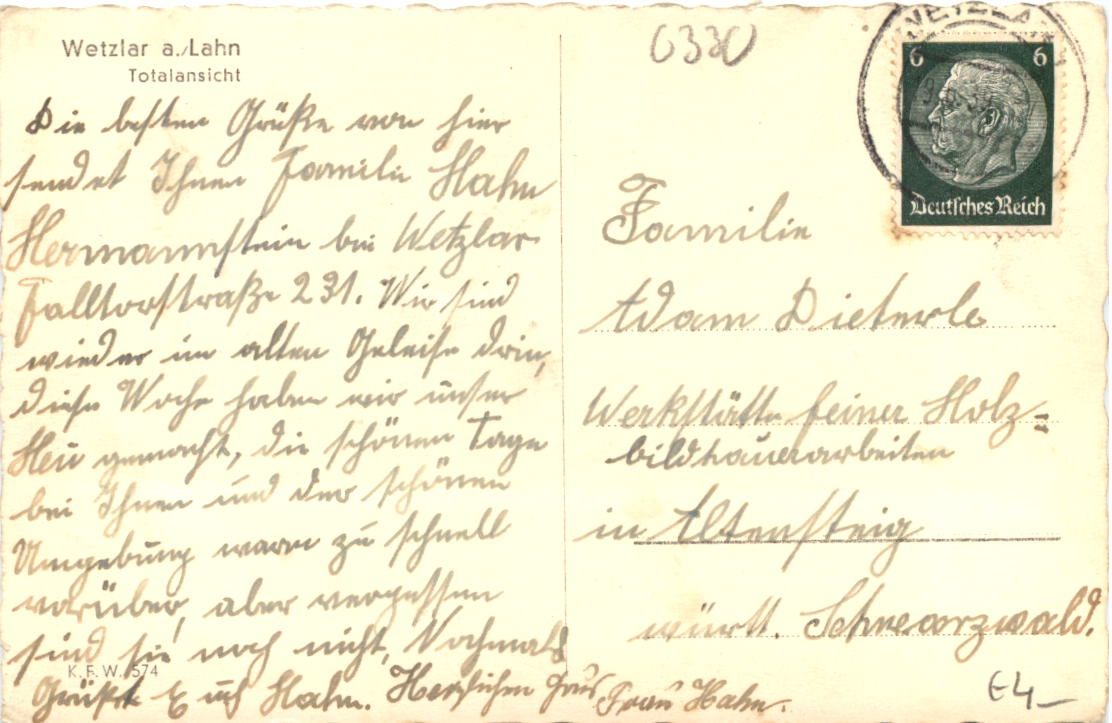 Wetzlar a./Lahn
Totalansicht
Die besten Grüße von hier
sendet Ihnen Familie Hahn
Hermannstein bei Wetzlar
Falltorstraße 231. Wir sind
wieder im alten Geleise drin,
diese Woche haben wir unser
Heu gemacht, die schönen Tage
bei Ihnen und der schönen
Umgebung waren zu schnell
vorüber, aber vergessen
sind sie noch nicht, Nochmals
K.F.W. 574
Grüßt Euch Hahn. Herzlichen Grus Frau Hahn.
6330
WETZLAR
6 6
Deutsches Reich
Familie
Adam Dieterle
Werkstätte feiner Holz=
bildhauerarbeiten
in Altensteig
württ. Schwarzwald.